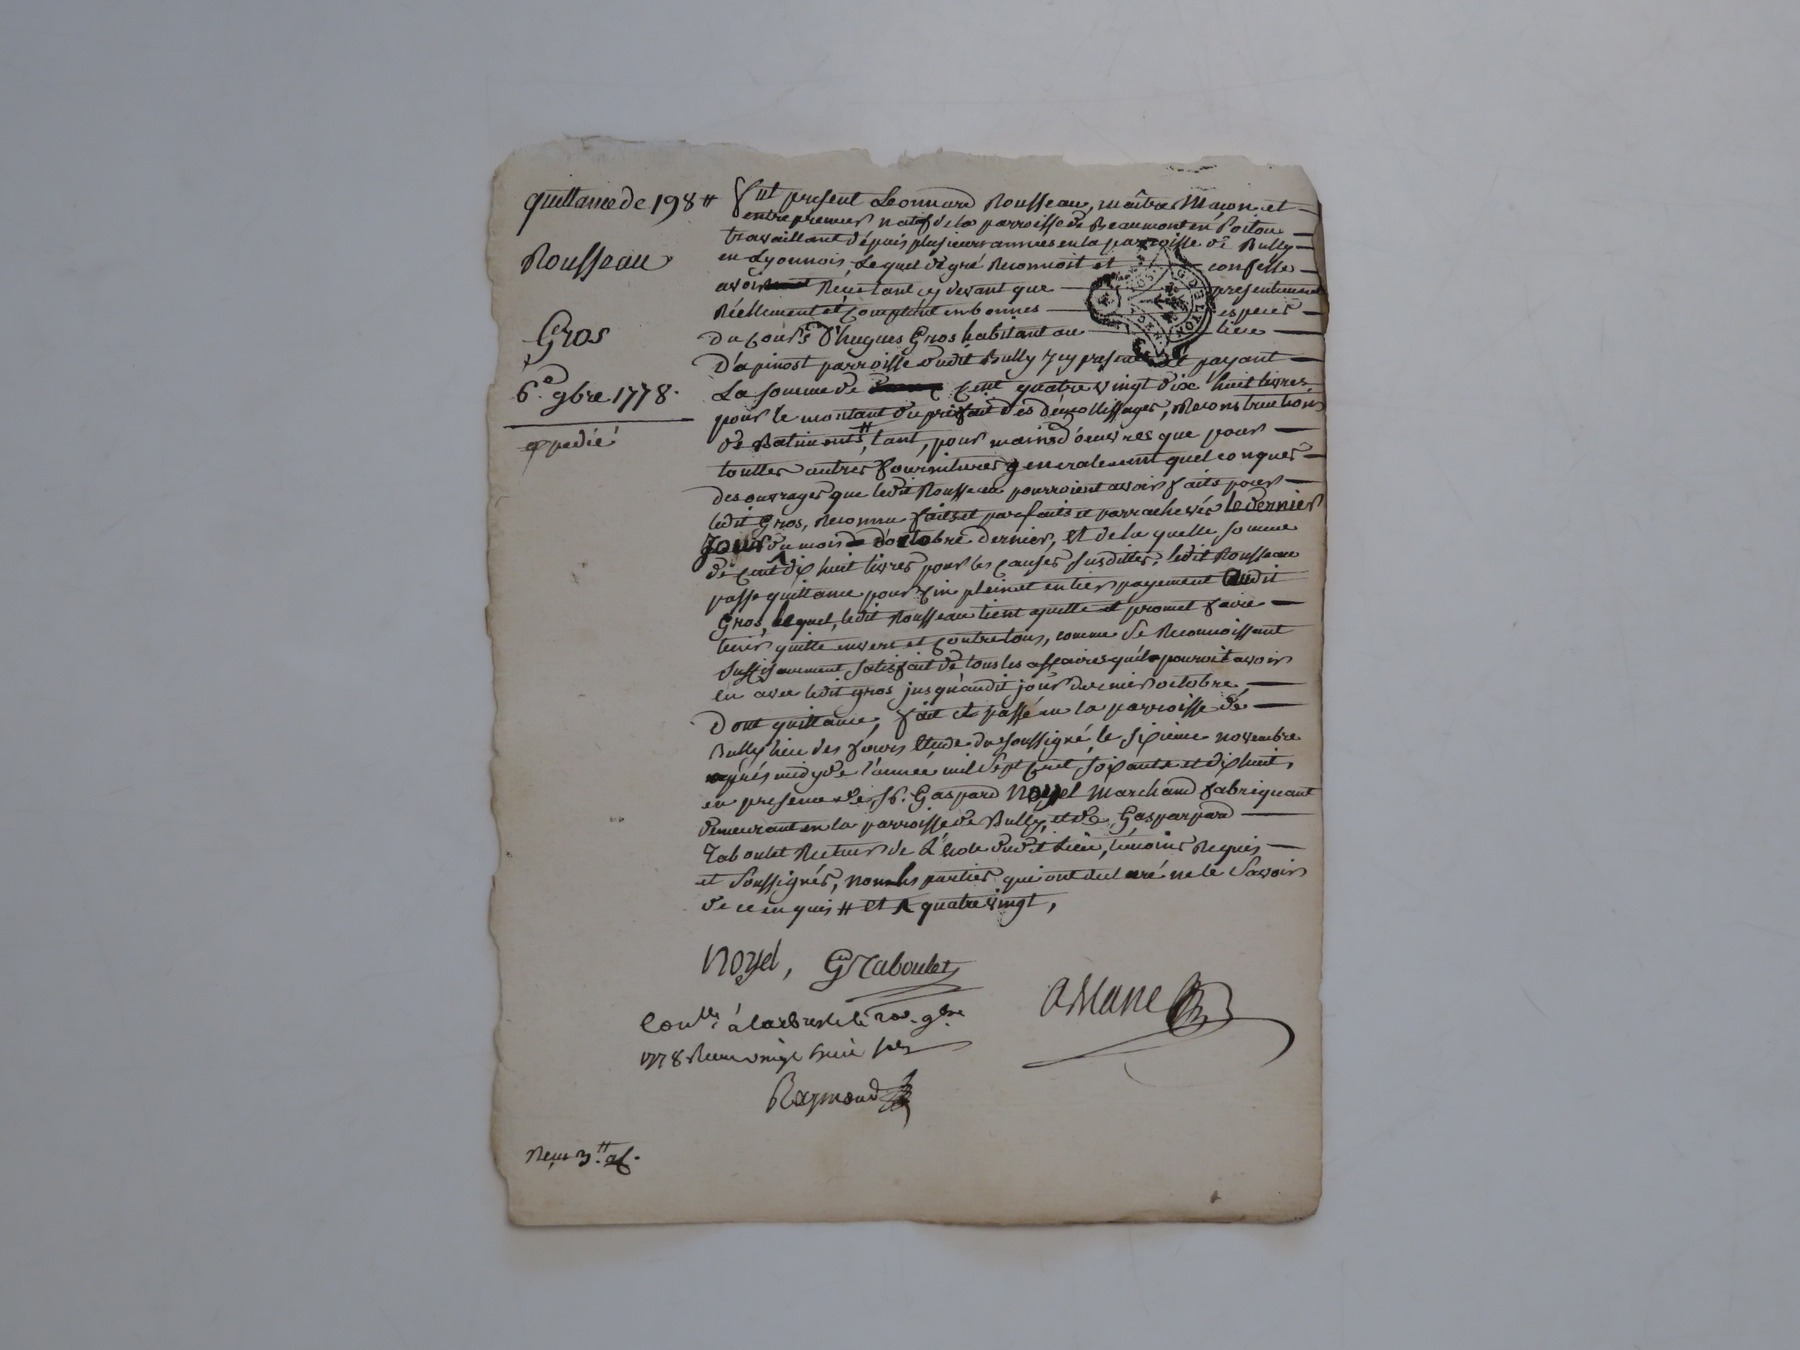 quittance de 198 ₶
Rousseau
Gros
6.e 9bre 1778.
expedié
Fut present Leonnard Rousseau, maître Maçon et
entrepreneur natif de la parroisse de Beaumont en Poitou
travaillant depuis plusieurs annees en la parroisse de Bully
en Lyonnois, Lequel de gré Reconnoit et confesse
avoir Reçu tant cy devant que presentement
Réellement et Comptant en bonnes especes
du Cours d'hugues Gros habitant au lieu
D'apinost parroisse dudit Bully, icy present et payant
La somme de Cent quatre vingt dix huit livres
pour le montant du prixfait des démollissages, Reconstructions
de Batiments, ₶ tant, pour mains d'oeuvres que pour
touttes autres fournitures generalement quelconques
des ouvrages que ledit Rousseau pourroient avoir faits pour
ledit Gros, Reconnu faits et parfaits et parrachevés le dernier
Jour du mois d'octobre dernier, et de la quelle somme
de Cent ^ dix huit livres pour les causes susdittes, ledit Rousseau
passe quittance pour fin plein et entier payement audit
Gros, lequel, ledit Rousseau tient quitte et promet faire
tenir quitte envers et Contre tous, comme se Reconnoissant
suffisamment satisfait de tous les affaires qu'il pourroit avoir
eu avec ledit gros jusqu'audit jour dernier octobre,
Dont quittance, fait et passé en la parroisse de
Bully lieu des fours Etude du soussigné le sixieme novembre
après midy de l'année mil sept Cent soixante et dix huit,
en presence de Sr. Gaspard Noyel Marchand fabriquant
demeurant en la parroisse de Bully, et de Gasparpard
Taboulet Recteur de L'école dudit Lieu, temoins Requis
et soussignés, non les parties qui ont declaré ne le savoir
de ce enquis ₶ et ^ quatre vingt,
Noyel, G Taboulet
Arlane
Conlle à Larbresle le 20e 9bre
1778 Reçu vingt huit sols
Raymond
Reçu 3 ₶